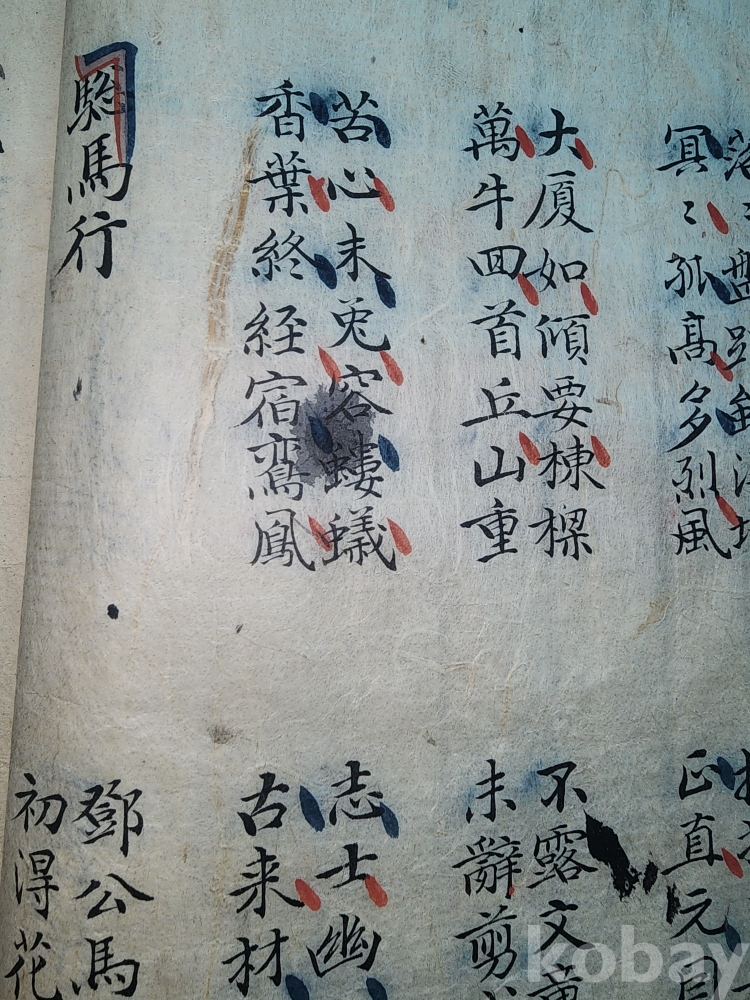 落〻盤
冥〻孤高多烈風
正直元
大厦如傾要棟樑
萬牛囬首丘山重
不露文章
未辭剪
苦心未免容螻蟻
香葉終経宿鸞鳳
志士幽
古来材
騘馬行
鄧公馬
初得花
kobay